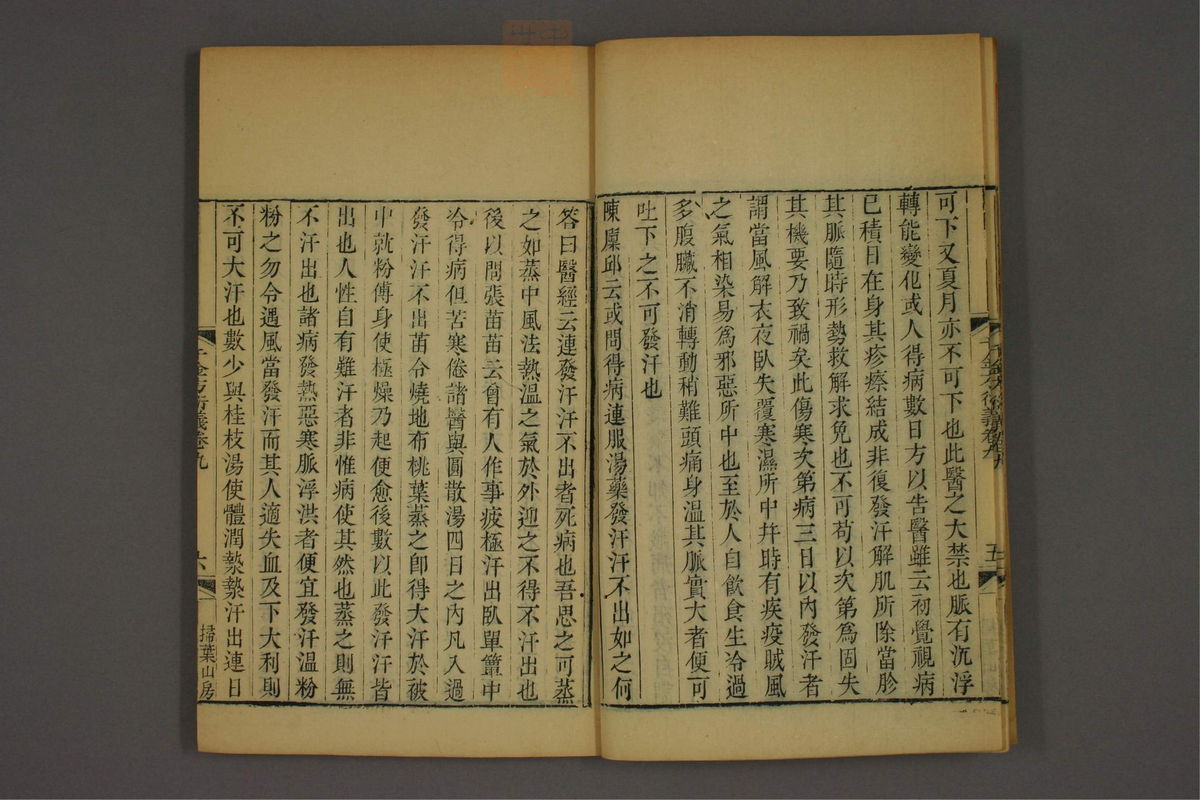 可下又夏月亦不可下也此醫之大禁也脈有沉浮
轉能變化或人得病數日方以告醫雖云初覺視病
已積日在身其疹瘵結成非復發汗解肌所除當胗
其脈隨時形勢救解求免也不可苟以次第爲固失
其機要乃致禍矣此傷寒次第病三日以內發汗者
謂當風解衣夜臥失覆寒濕所中幷時有疾疫賊風
之氣相染易爲邪惡所中也至於人自飲食生冷過
多腹臟不消轉動稍難頭痛身溫其脈實大者便可
吐下之不可發汗也
陳廩邱云或問得病連服湯藥發汗汗不出如之何
千金方衍義卷九
五
答曰醫經云連發汗汗不出者死病也吾思之可蒸
之如蒸中風法熱溫之氣於外迎之不得不汗出也
後以問張苗苗云曾有人作事疲極汗出臥單簟中
冷得病但苦寒倦諸醫與圓散湯四日之內凡入過
發汗汗不出苗令燒地布桃葉蒸之卽得大汗於被
中就粉傅身使極燥乃起便愈後數以此發汗汗皆
出也人性自有難汗者非惟病使其然也蒸之則無
不汗出也諸病發熱惡寒脈浮洪者便宜發汗溫粉
粉之勿令遇風當發汗而其人適失血及下大利則
不可大汗也數少與桂枝湯使體潤漐漐汗出連日
千金方衍義卷九
六
掃葉山房